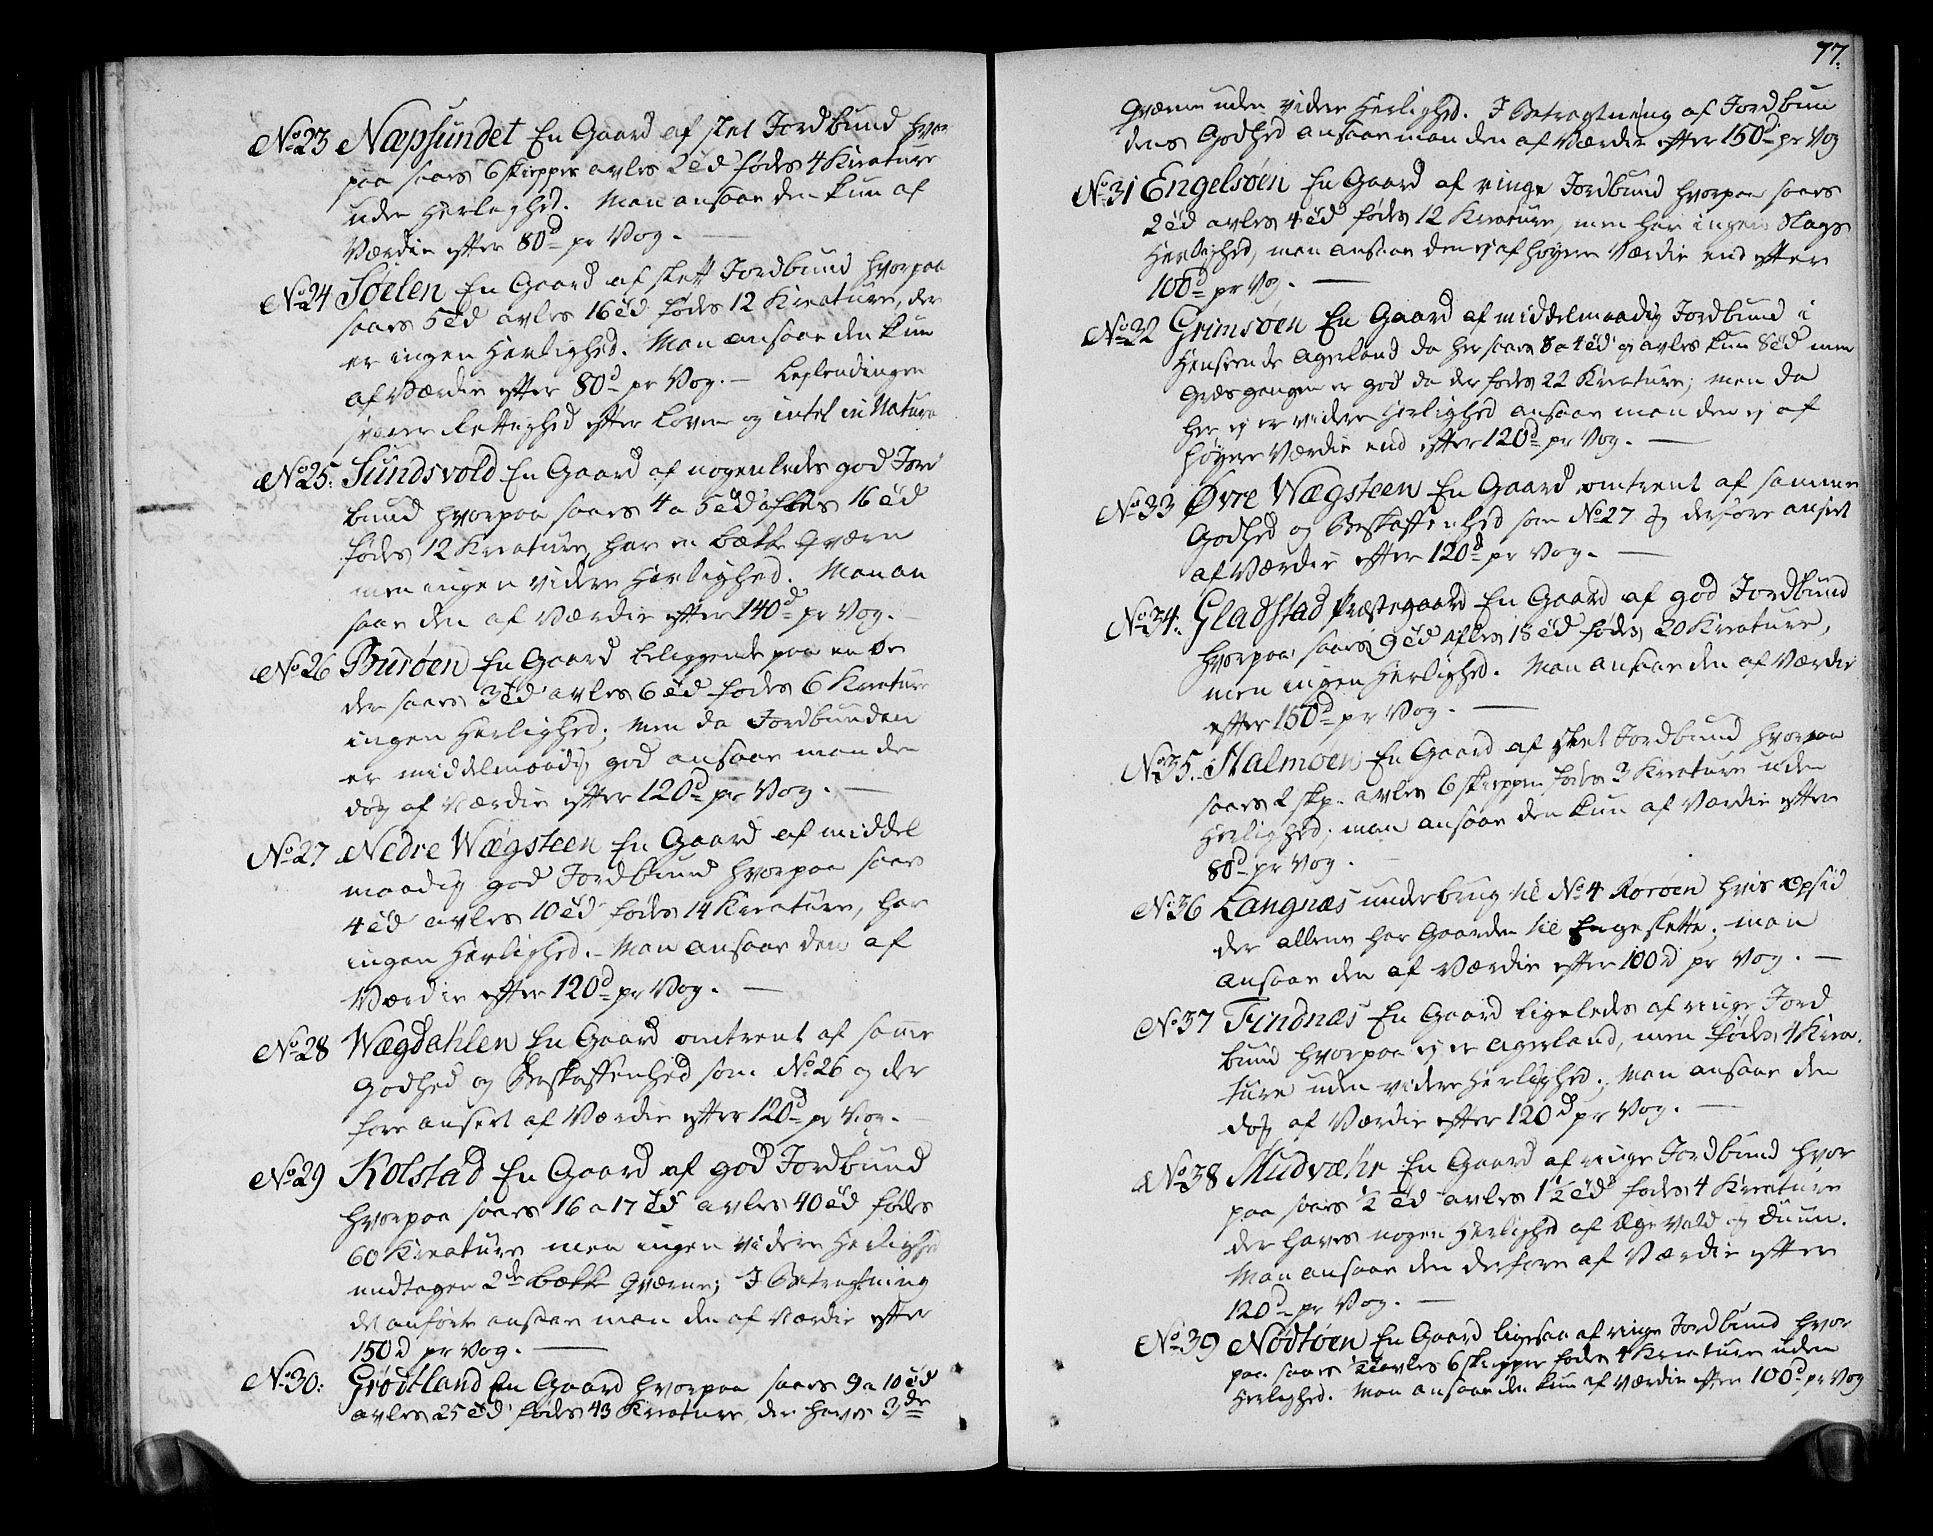 No 23 Napsundet En Gaard af slet Jordbund hvor
paa saaes 6 skiepper avles 2 td fødes 4 Kreature
uden Herlighed. Man ansaae den kun af
Værdie efter 80 d pr Vog. —
No 24 Søelen En Gaard af slett Jordbund hvorpaa
saaes 5 td avles 16 td fødes 12 Kreature, der
er ingen Herlighed. Man ansaae den kun
af Værdie efter 80 d pr Vog. — Leylendingen
svarer Rettighed efter Loven og intet in Natura
No 25: Sundsvold En Gaard af nogenledes god Jord
bund hvorpaa saaes 4 a 5 td afles 16 td
fødes 12 Kreature, har en bække Qværn
men ingen videre Herlighed. Man an
saae den af Værdie efter 140 d pr Vog. —
No 26 Burøen En Gaard beliggende paa en Øe
der saaes 3 td avles 6 td fødes 6 Kreature
ingen Herlighed; Men da Jordbunden
er middelmaadig god ansaae man den
dog af Værdie efter 120 d pr Vog. —
No 27 Nedre Wægsteen En Gaard af middel
maadig god Jordbund hvorpaa saaes
4 td avles 10 td, fødes 14 Kreature, har
ingen Herlighed. — Man ansaae den af
Værdie efter 120 d pr Vog. —
No 28 Wægdahlen En Gaard omtrent af samme
Godhed og Beskaffenhed som No 26 og der
fore anseet af Værdie efter 120 d pr Vog. —
No 29 Kolstad En Gaard af god Jordbund
hvorpaa saaes 16 a 17 td avles 40 td fødes
60 Kreature men ingen videre Herlighed
undtagen 2de bække Qværne; I Betragtning
det anførte ansaae man den af Værdie efter
150 d pr Vog. —
No 30: Grødtland En Gaard hvorpaa saaes 9 a 10 td
avles 25 td fødes 43 Kreature, der haves 3de
77.
Qværne uden videre Herlighed. I Betragtning af Jordbun
dens Godhed ansaae man den af Værdie efter 150 d pr Vog
No 31 Engelsøen En Gaard af ringe Jordbund hvorpaa saaes
2 td avles 4 td fødes 12 Kreature, men har ingen Slags
Herlighed, man ansaae den ej af høyere Værdie end efter
100 d pr Vog. —
No 32 Grimsøen En Gaard af middelmaadig Jordbund i
Henseende Agerland da her saaes 3 a 4 td og avles kun 8 td men
Græsgangen er god da der fødes 22 Kreature; men da
her ej er videre Herlighed ansaae man den ej af
høyere Værdie end efter 120 d pr Vog. —
No 33 Øvre Wægsteen En Gaard omtrent af samme
Godhed og Beskaffenhed som No 27 og derfore anseet
af Værdie efter 120 d pr Vog. —
No 34: Gladstad Præstegaard En Gaard af god Jordbund
hvorpaa saaes 9 td afles 18 td fødes 20 Kreature,
men ingen Herlighed. Man ansaae den af Værdie
efter 150 d pr Vog. —
No 35. Halmøen En Gaard af slet Jordbund hvorpaa
saaes 2 skp. avles 6 skiepper fødes 3 Kreature uden
Herlighed; man ansaae den kun af Værdie efter
80 d pr Vog. —
No 36 Langnæs underbrug til No 4 Rørøen hvis Opsid
der allene har Gaarden til Engeslette; man
ansaae den af Værdie efter 100 d pr Vog. —
No 37 Findnæs En Gaard ligeleds af ringe Jord
bund hvorpaa ej er Agerland, men fødes 4 Krea
ture uden videre Herlighed; Man ansaae den
dog af Værdie efter 120 d pr Vog. —
No 38 Mudvæhr En Gaard af ringe Jordbund hvor
paa saaes 1/2 td avles 1 1/2 td fødes 4 Kreature
der haves nogen Herlighed af Ægevald og Duun.
Man ansaae den derfore af Værdie efter
120 d pr Vog. —
No 39 Nødtøen En Gaard ligesaa af ringe Jordbund hvor
paa saaes avles 6 skiepper fødes 4 Kreature uden
Herlighed. Man ansaae den kun af Værdie efter 100 d pr Vog